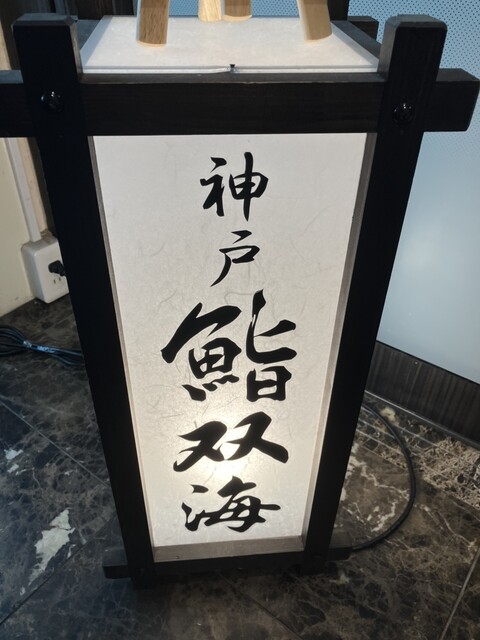 神戸
鮨双海